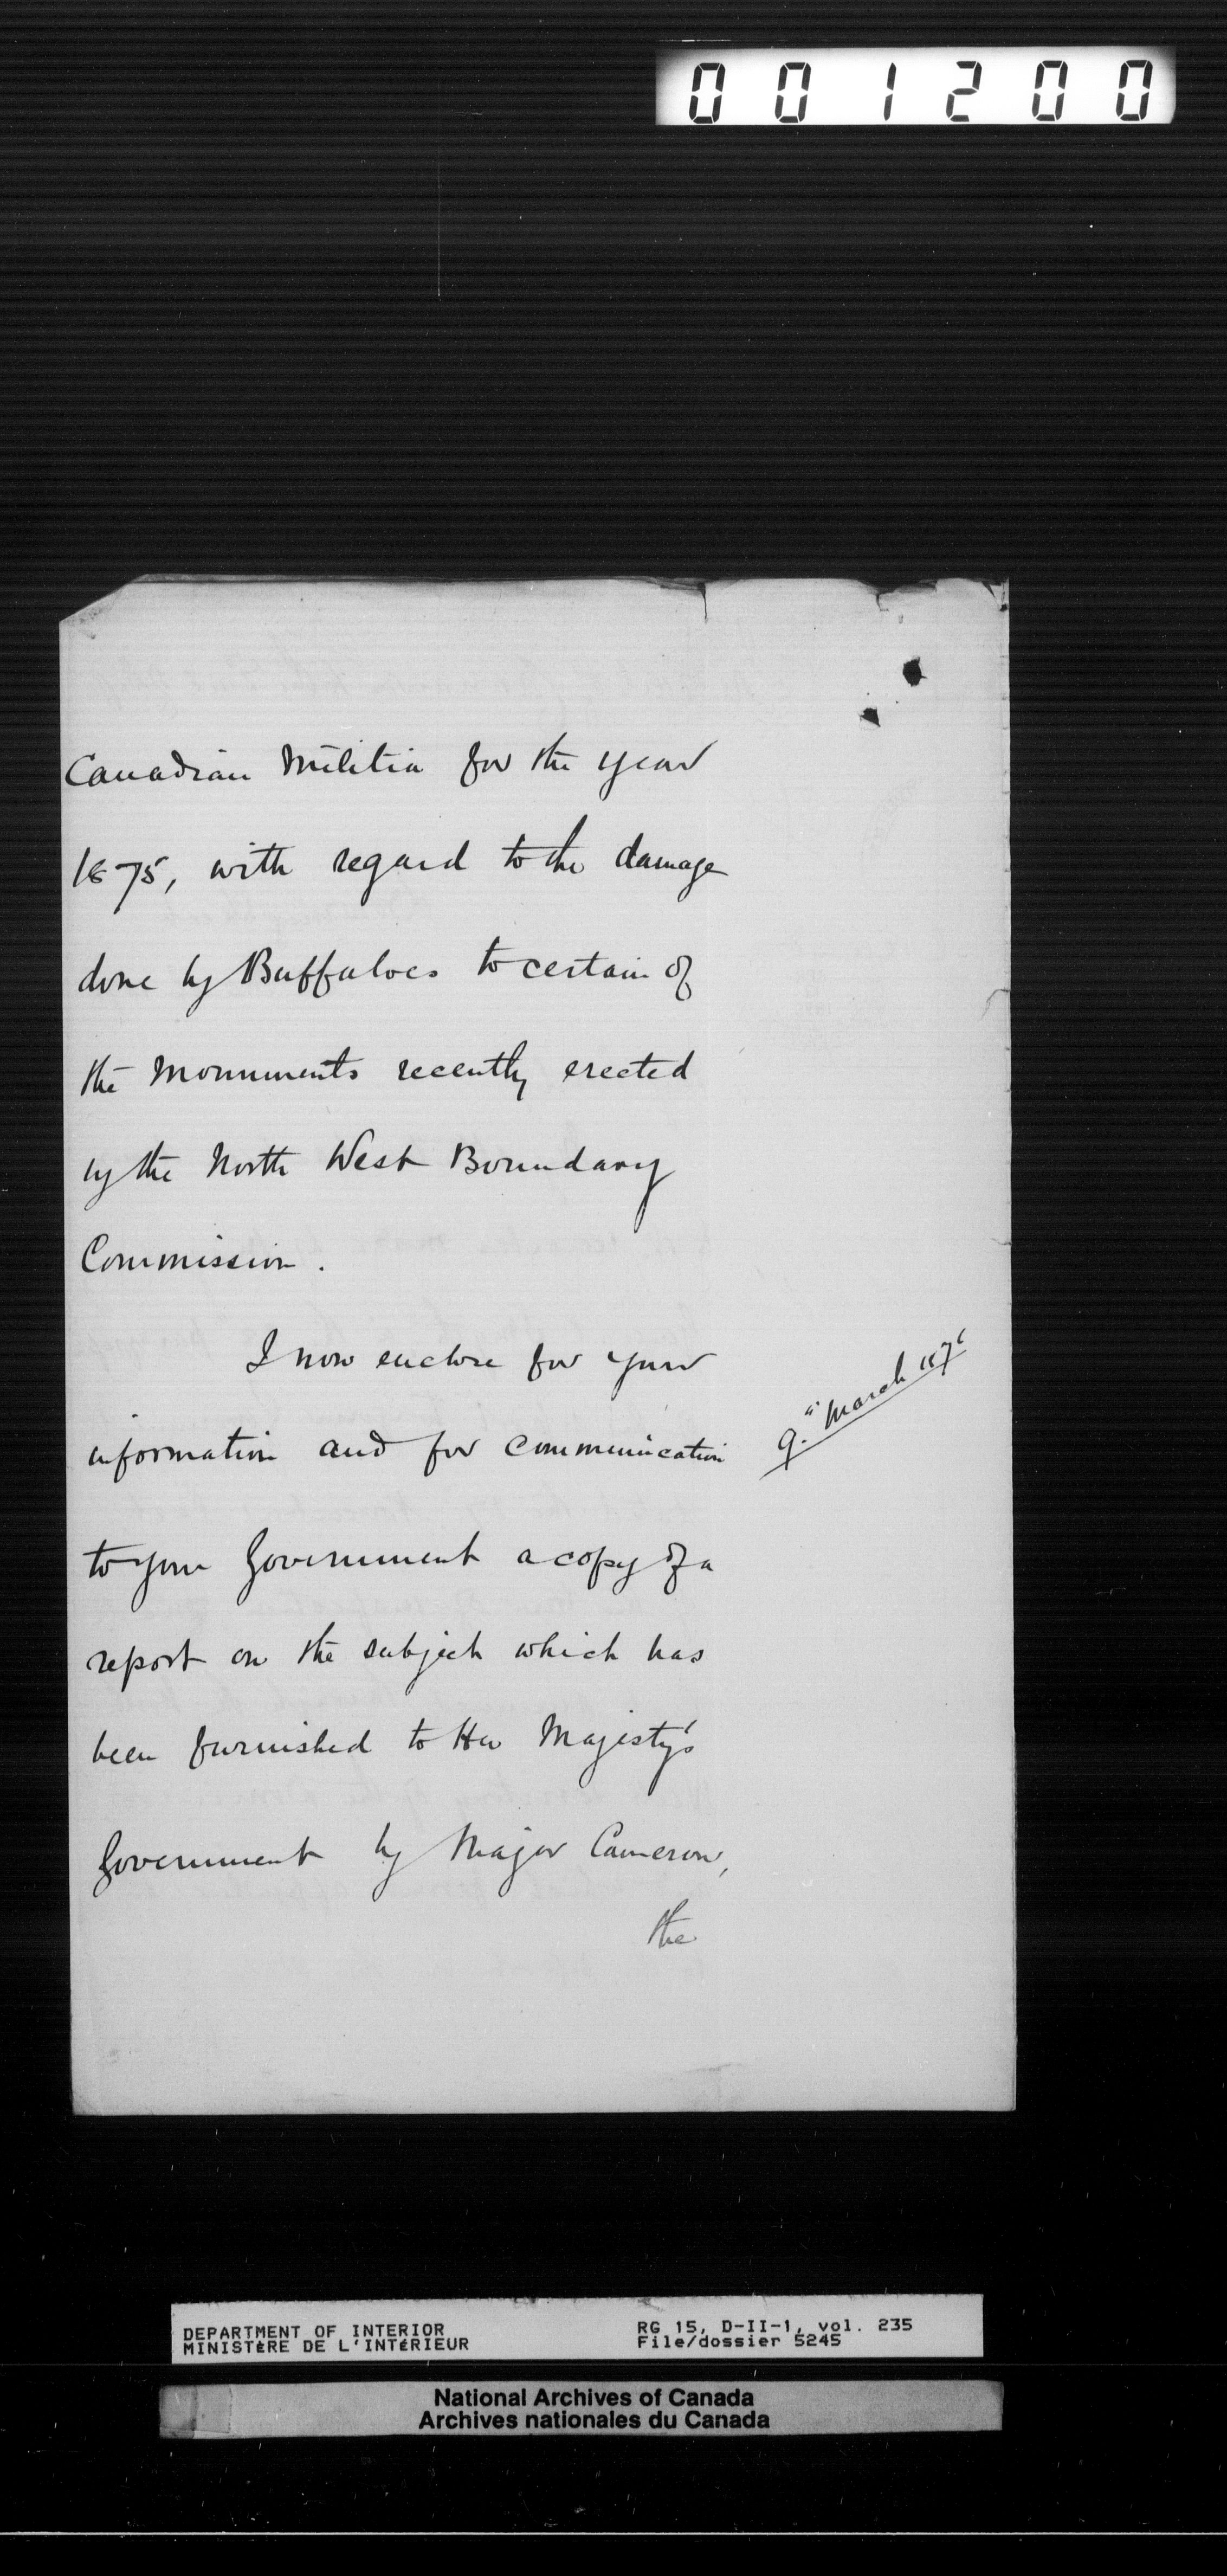 001200
Canadian Militia for the year
1875, with regard to the damage
done by Buffaloes to certain of
the Monuments recently erected
by the North West Boundary
Commission.
I now enclose for your
9. March 187
information and for communication
to your Government a copy of a
report on the subject which has
been furnished to Her Majesty's
Government by Major Cameron,
the
DEPARTMENT OF INTERIOR RG 15, D-II-1, vol. 235
MINISTÈRE DE L'INTÉRIEUR File/dossier 5245
National Archives of Canada
Archives nationales du Canada